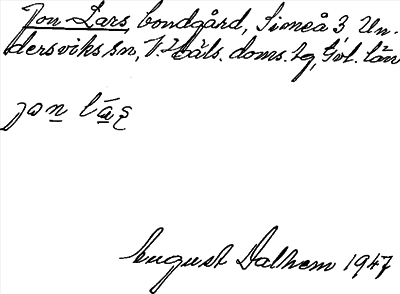 Jon Lars bondgård, Simeå 3 Un-
dersviks sn, V. Häls. doms. hg, Gvl. län
jon lās
August Dalhem 1947